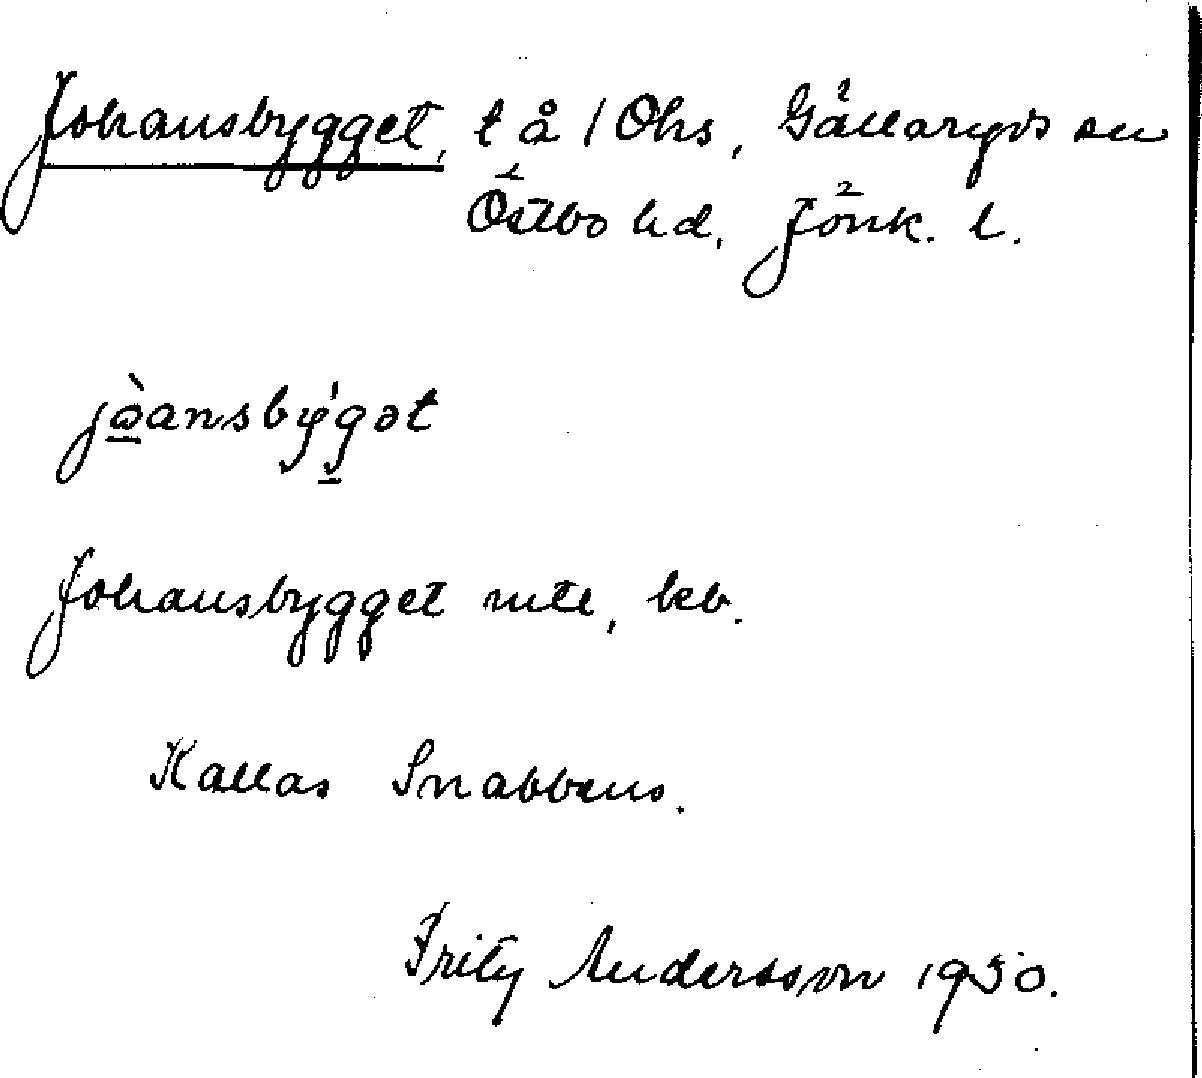 Johansbygget, t å 1 Ohs, Gällaryds sn
Östbo hd, Jönk. l.
jòansbýgət
Johansbygget mtl, kb.
Kallas Snabbens.
Fritz Andersson 1930.